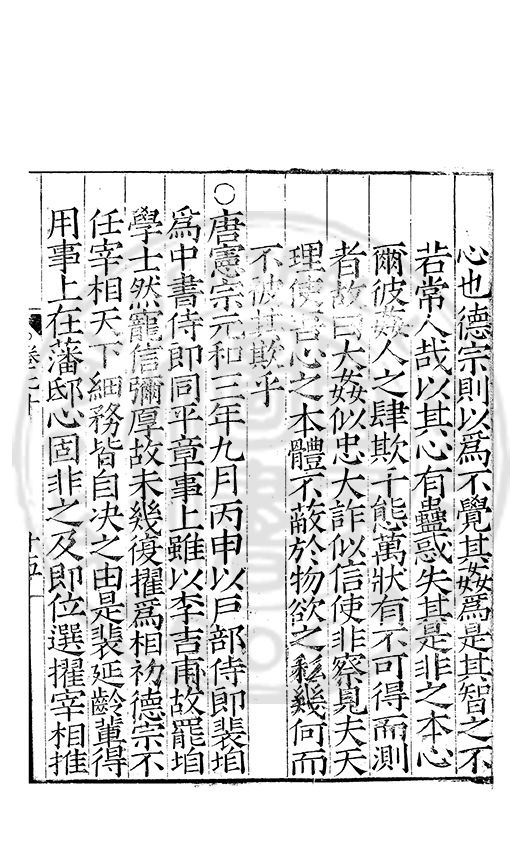 心也德宗則以爲不覺其姦爲是其智之不
若常人哉以其心有蠱惑失其是非之本心
爾彼姦人之肆欺千態萬狀有不可得而測
者故曰大姦似忠大詐似信使非察見夫天
理使吾心之本體不蔽於物欲之私幾何而
不被其欺乎
○唐憲宗元和三年九月丙申以戶部侍郎裴垍
爲中書侍郎同平章事上雖以李吉甫故罷垍
學士然寵信彌厚故未幾復擢爲相初德宗不
任宰相天下細務皆自決之由是裴延齡輩得
用事上在藩邸心固非之及即位選擢宰相推